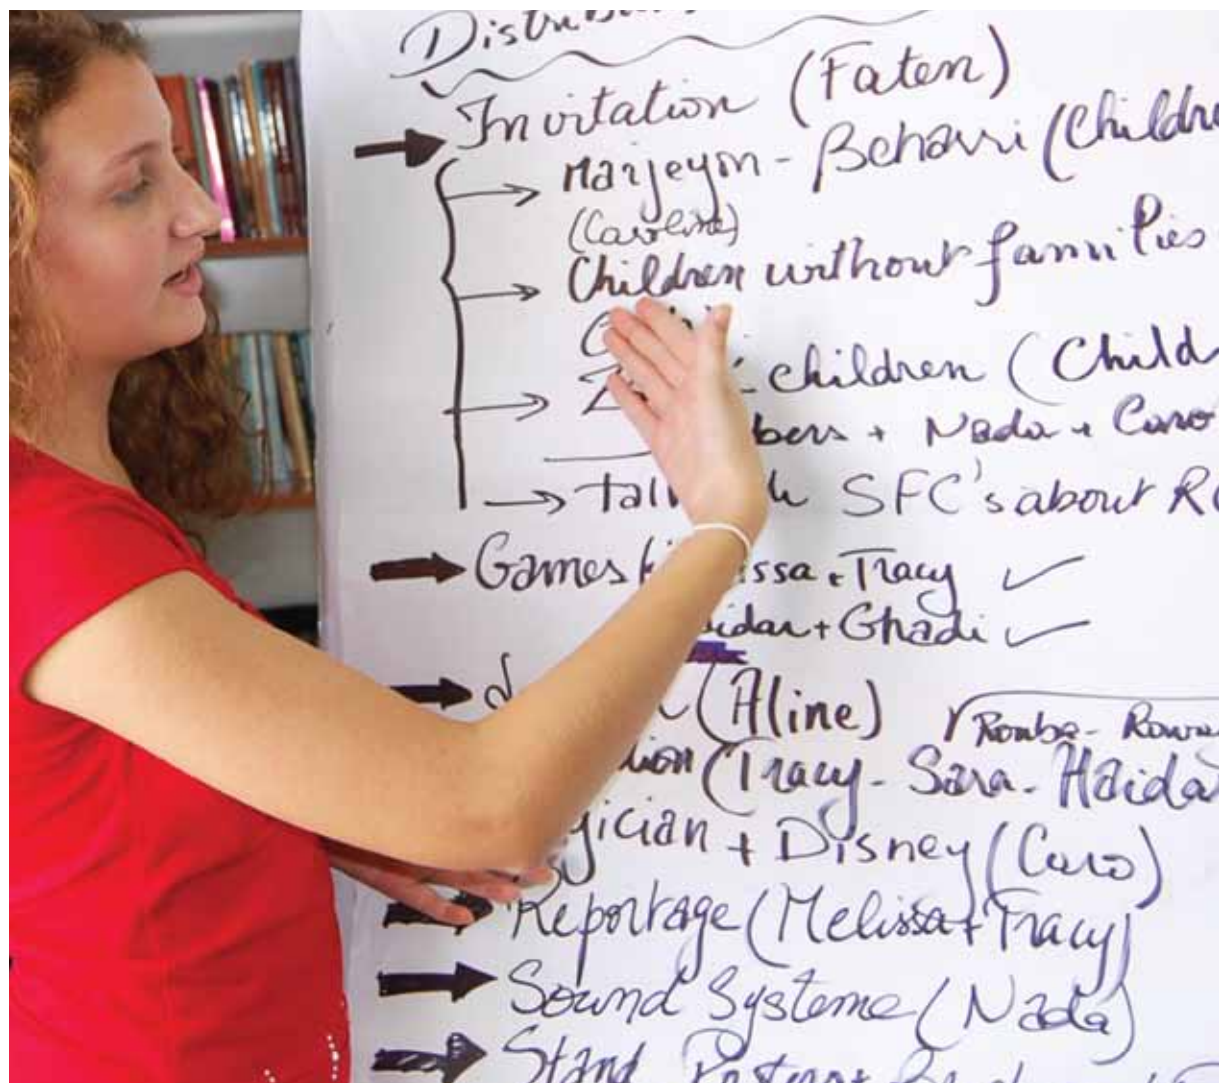 Invitation (Faten)
Marjeyon - Beharri (Childre
(Caroline)
Children without families
children (Child
bers + Nada + Caro
SFC's about R
Games
issa + Tracy ✓
idar + Ghadi ✓
(Aline)
ion (Tracy - Sara - Haida
gician + Disney (Caro)
Reportage (Melissa + Tracy)
Sound Systeme (Nada)
Stand Posters +